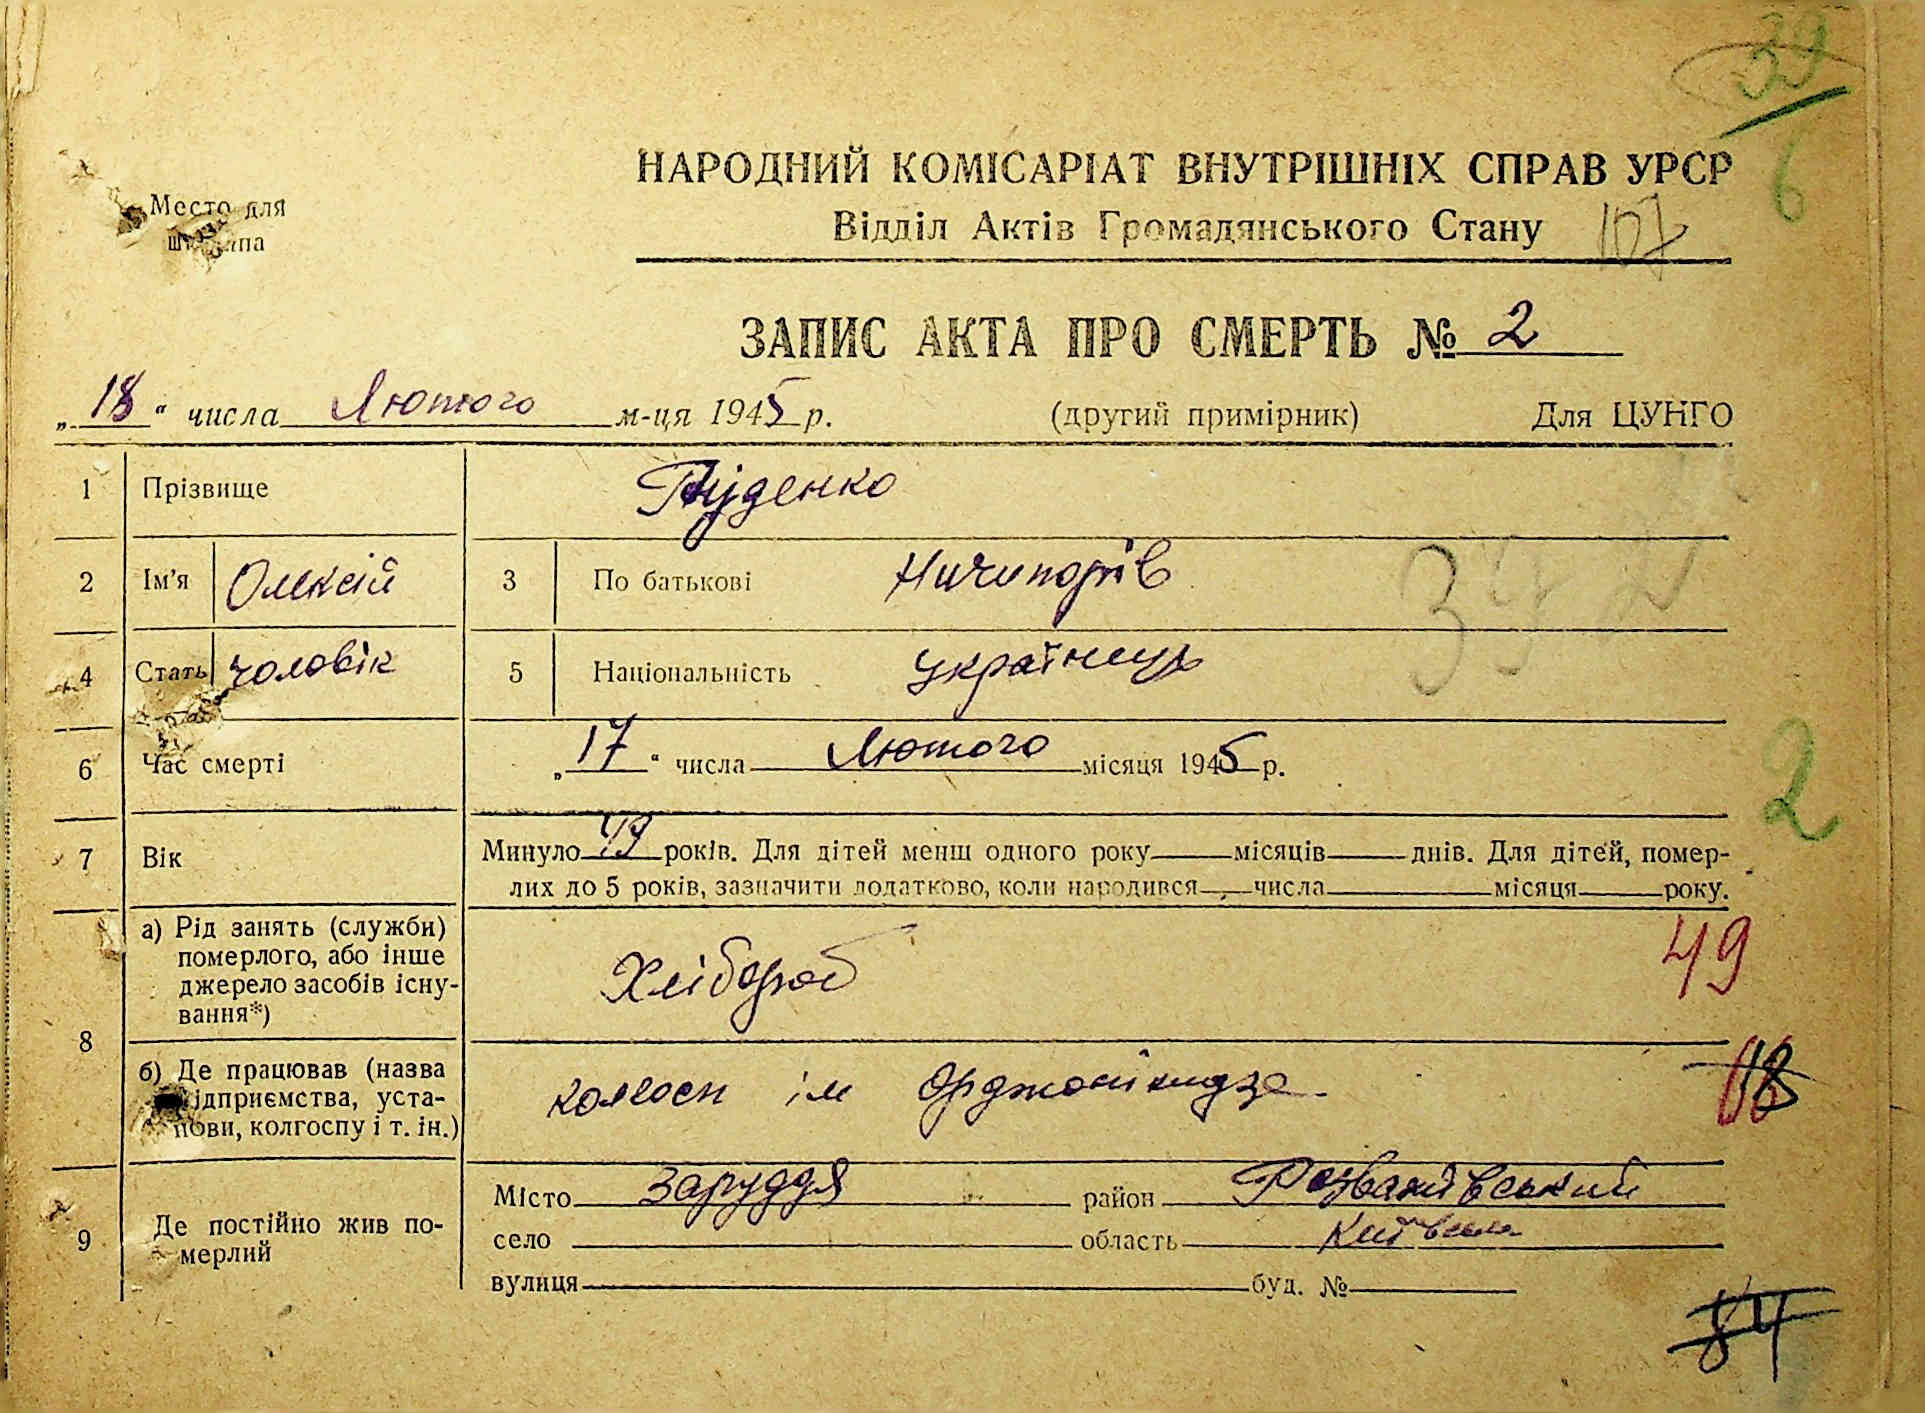 39
6
Место для
штампа
НАРОДНИЙ КОМІСАРІАТ ВНУТРІШНІХ СПРАВ УРСР
Відділ Актів Громадянського Стану 107
ЗАПИС АКТА ПРО СМЕРТЬ № 2
„18“ числа Лютого м-ця 1945 р. (другий примірник) Для ЦУНГО
1 Прізвище
2 Ім'я Олексій 3 По батькові Ничипорів
4 Стать чоловік 5 Національність українець
6 Час смерті „17“ числа Лютого місяця 1945 р.
2
7 Вік Минуло 49 років. Для дітей менш одного року місяців днів. Для дітей, помер-
лих до 5 років, зазначити додатково, коли народився числа місяця року.
8 а) Рід занять (служби) померлого, або інше джерело засобів існу-вання*) Хлібороб 49
б) Де працював (назва підприємства, уста-нови, колгоспу і т. ін.) колгосп ім Орджонікидзе 18
9 Де постійно жив по-мерлий
Місто Заруддя район Розважівський
село область Київська
вулиця буд. №
84